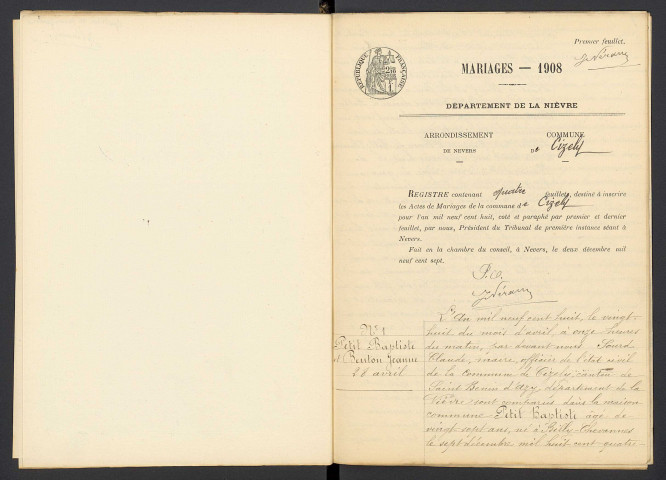 Premier feuillet.
RÉPUBLIQUE FRANÇAISE
MARIAGES — 1908
DÉPARTEMENT DE LA NIÈVRE
ARRONDISSEMENT
DE NEVERS
COMMUNE
De Cizely
REGISTRE contenant quatre feuillets, destiné à inscrire
les Actes de Mariages de la commune de Cizely
pour l'an mil neuf cent huit, coté et paraphé par premier et dernier
feuillet, par nous, Président du Tribunal de première instance séant à
Nevers.
Fait en la chambre du conseil, à Nevers, le deux décembre mil
neuf cent sept.
P.O.
N° 1
Petit Baptiste
et Benton Jeanne
28 avril
L'An mil neuf cent huit, le vingt-
huit du mois d'avril, à onze heures
du matin, par devant nous
Claude, maire, officier de l'état civil
de la commune de Cizely, canton de
Saint Benin d'Azy, département de la
Nièvre sont comparus dans la maison
commune Petit Baptiste âgé de
vingt sept ans, né à Billy-Chevannes
le sept décembre mil huit cent quatre-